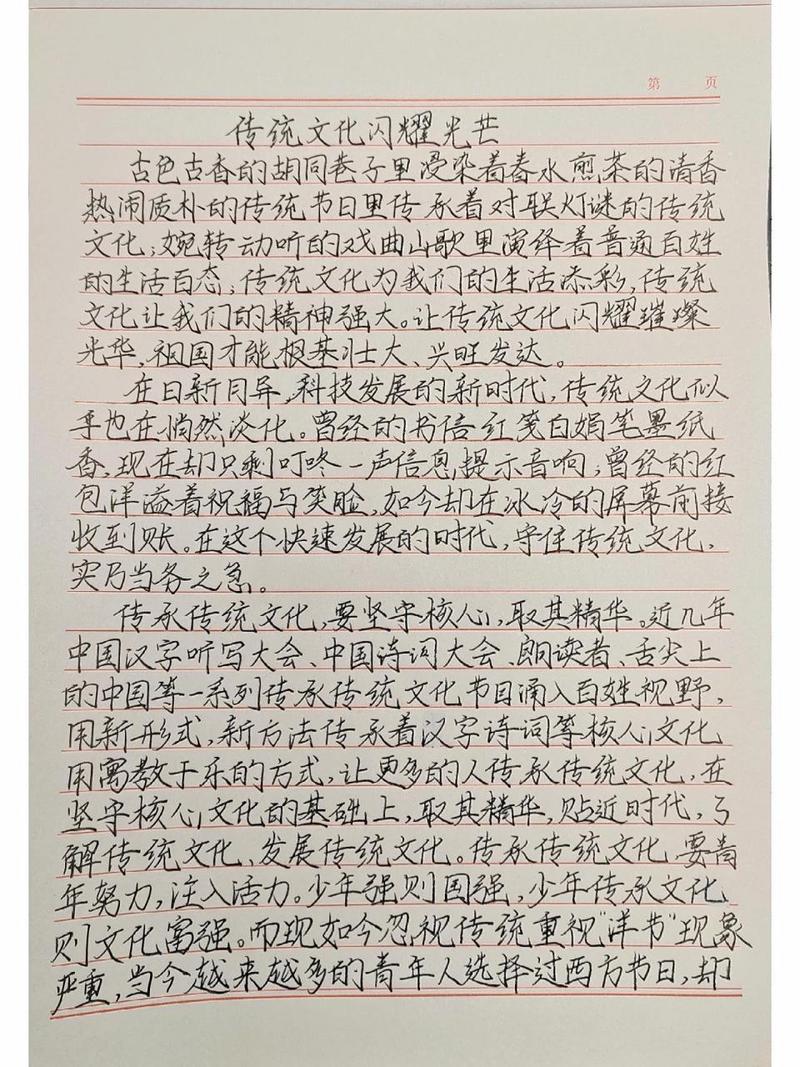 第 页
传统文化闪耀光芒
古色古香的胡同巷子里浸染着春水煎茶的清香
热闹质朴的传统节日里传承着对联灯谜的传统
文化；婉转动听的戏曲山歌里演绎着普通百姓
的生活百态；传统文化为我们的生活添彩，传统
文化让我们的精神强大。让传统文化闪耀璀璨
光华，祖国才能根基壮大、兴旺发达。
在日新月异，科技发展的新时代，传统文化似
乎也在悄然淡化。曾经的书信红笺白娟笔墨纸
香，现在却只剩叮咚一声信息提示音响；曾经的红
包洋溢着祝福与笑脸，如今却在冰冷的屏幕前接
收到账。在这个快速发展的时代，守住传统文化，
实乃当务之急。
传承传统文化，要坚守核心，取其精华。近几年
中国汉字听写大会、中国诗词大会、朗读者、舌尖上
的中国等一系列传承传统文化节目涌入百姓视野，
用新形式，新方法传承着汉字诗词等核心文化
用寓教于乐的方式，让更多的人传承传统文化，在
坚守核心文化的基础上，取其精华，贴近时代，了
解传统文化、发展传统文化。传承传统文化，要青
年努力，注入活力。少年强则国强，少年传承文化
则文化富强。而现如今忽视传统重视“洋节”现象
严重，当今越来越多的青年人选择过西方节日，却